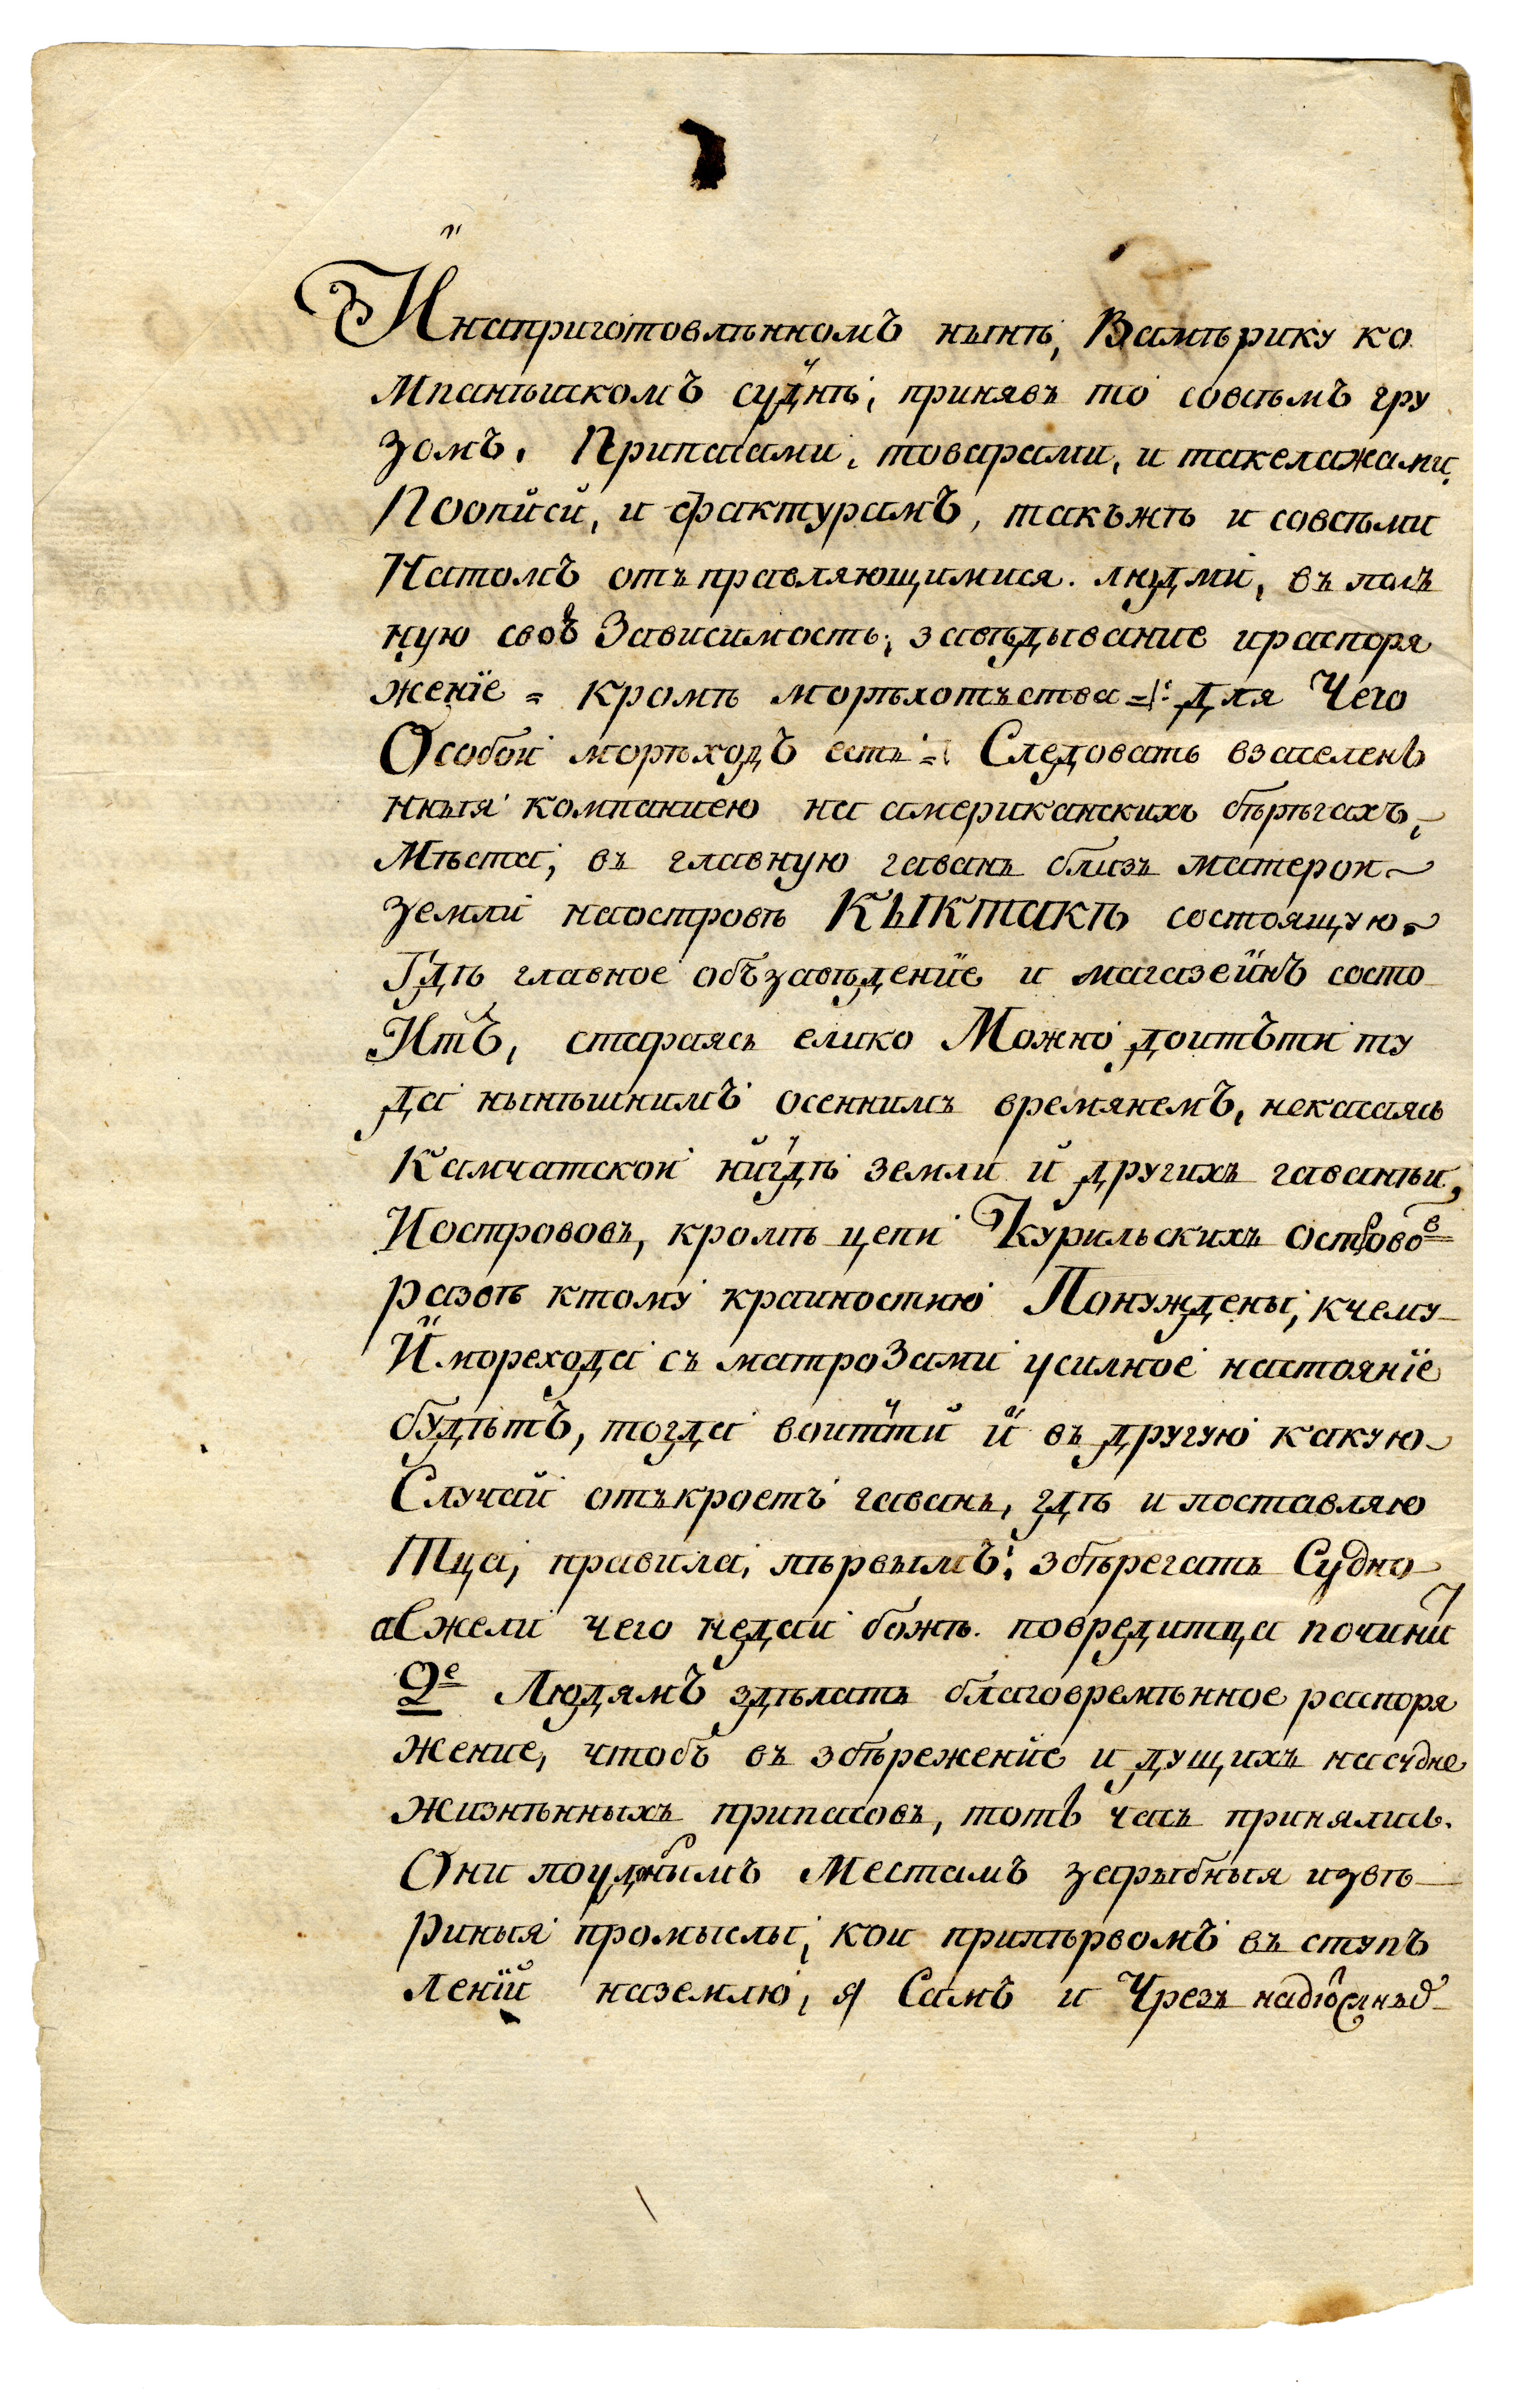 И наприготовлѣнномъ нынѣ, Вамѣрику ко
мпанѣискомъ суднѣ, принявъ то совсѣмъ гру
зомъ. Припасами, товарами, и такелажами,
Поописи, и фактурамъ, такъжѣ и совсѣми
Натомъ отъправляющимися. людми, въ полъ
ную своъ Зависимость, завѣдывание ираспоря
жение = кромѣморѣхотъства =/: для Чего
Особои морѣходъ есть := Следовать взаселенъ
нныя компаниею на американскихъ бѣрѣгахъ,
Мѣста, въ главную гавань близъ матерои
земли наостровѣ Кыктакѣ состоящую.
Гдѣ главное объзавѣдение и магазеинъ состо
Итъ, стараясь елико Можно доитъти ту
да нынѣшнимъ осеннимъ времянемъ, некасаясь
Камчатскои нигдѣ земли и другихъ гаванѣи,
Иострововъ, кромѣ цепи Курильскихъ острово в
развѣ ктому краиностию Понуждены, кчему
И морехода съ матроЗами усилное настоянiе
будѣтъ, тогда воитъти и въ другую какую
Случаи отъкроетъ гавань, гдѣ и поставляю
Тца, правила, пѣрвымъ: збѣрегать Судно
аежели чего недаи божѣ. повредитца починит
2е Людямъ здѣлать благоврѣмѣнное распоря
жение, чтобъ въ збѣрежение и дущихъ насудне
жизнѣнныхъ припасовъ, тотъ часъ принялись.
Они поуднымъ Местамъ зарыбныя извѣ
риныя промыслы, кои припѣрвомъ въ ступъ
лении наземлю, я Самъ и Чрезъ